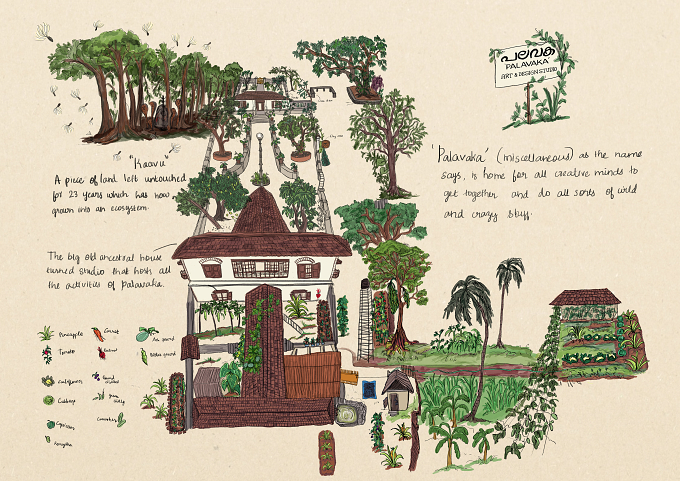 പലവക
PALAVAKA
ART & DESIGN STUDIO
"Kaavu"
A piece of land left untouched
for 23 years which has now
grown into an ecosystem.
'Palavaka' (miscellaneous) as the name
says, is home for all creative minds to
get together and do all sorts of wild
and crazy stuff.
The big old ancestral house
turned studio that hosts all
the activities of Palavaka.
Pineapple
Carrot
Ash gourd
Tomato
Beetroot
Bitter gourd
Cauliflower
Round chillies
Cabbage
green chilly
Capsicum
Cucumber